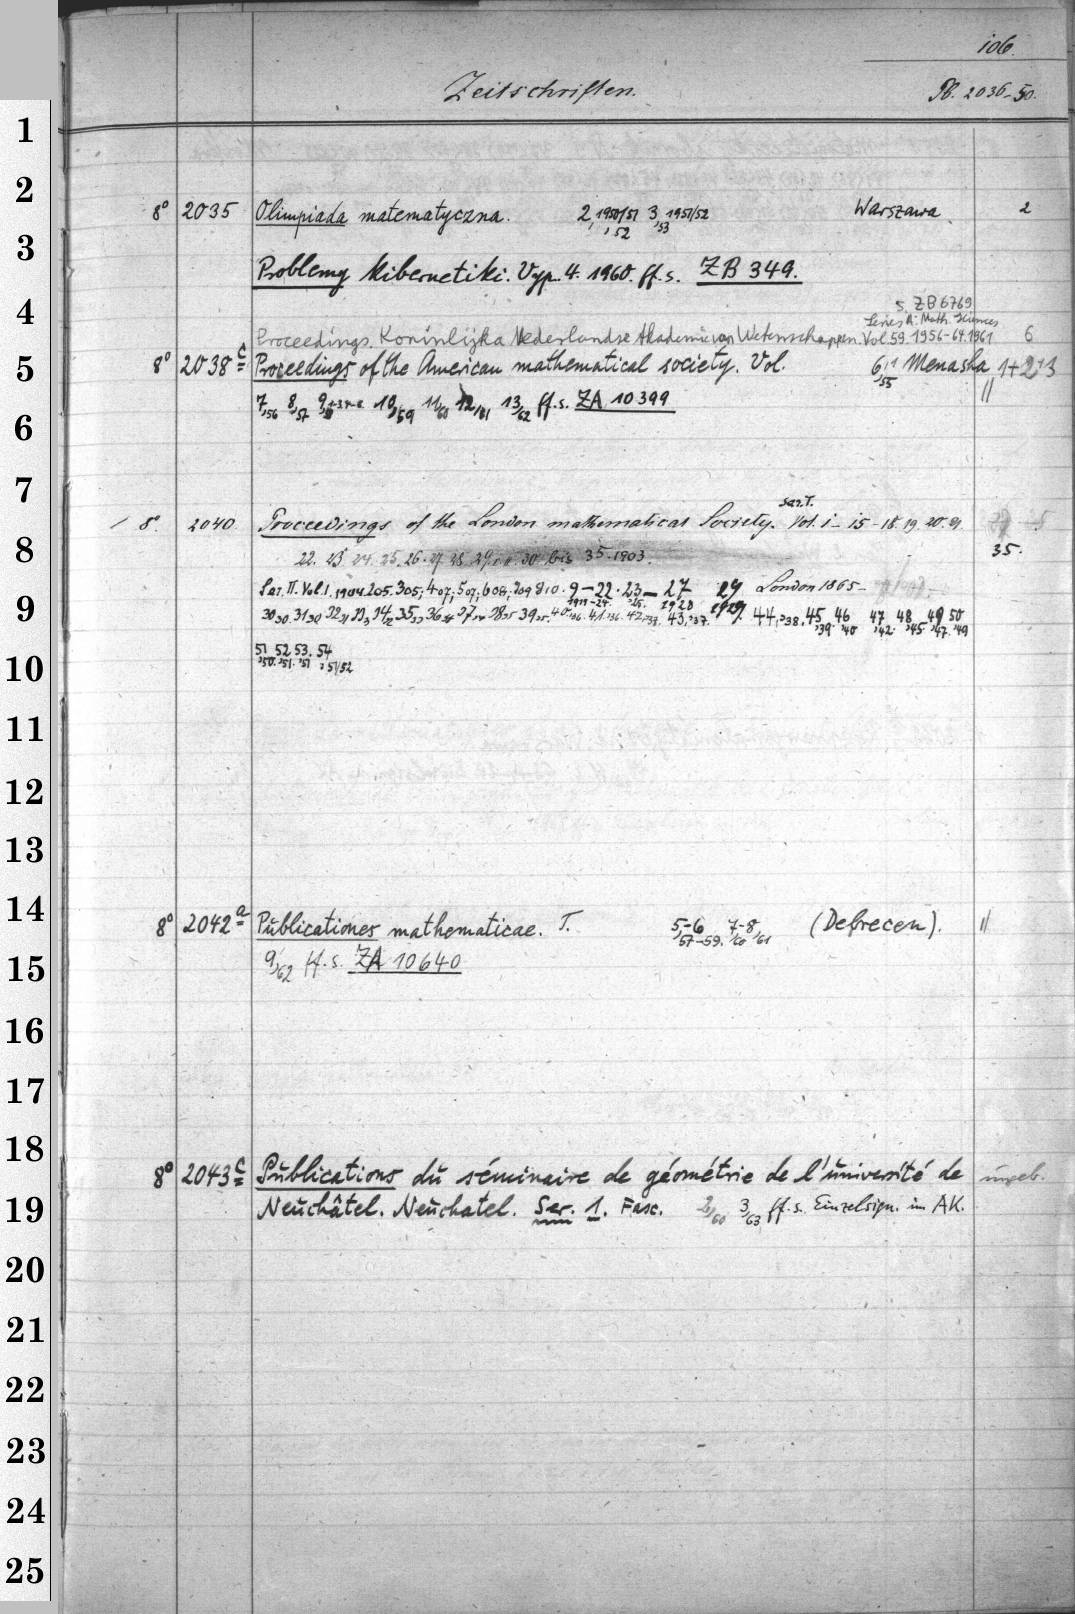 106.
Zeitschriften.
Pb. 2036-50.
1
2
8° 2035 Olimpiada matematyczna. 2, 1950/51 3, 1951/52 Warszawa. 2
,52 ,53
3
Problemy kibernetiki. Vyp. 4. 1960. ff. s. ZB 349.
4
s. ZB 6769
Series A: Math. Sciences
Proceedings. Koninlijka Nederlandse Akademie van Wetenschappen. Vol 59. 1956-64.1961 6
5
8° 2038c Proceedings of the American mathematical society. Vol. 6,55 Menasha 1+2+3
7,56 8,57 9, 10,59 11/60 12/61 13/62 ff. s. ZA 10399 //
6
7
Ser. I.
/ 8°. 2040. Proceedings of the London mathematical Society. Vol. 1-15-18. 19. 20. 21.
8
22. 23. 24. 25. 26. 27. 28. 29. 30. bis 35. 1903. 35.
Ser. II. Vol. 1. 1904. 205. 305; 407; 507; 608; 709 810. 9-22. 23-27 29 London 1865-
9
1928 1929.
30 30. 31 30 44,'38. 45 46 47 48 49 50
'39. '40 '42. '45. '47. '49
10
51 52 53. 54
'50. '51. '51 '51/52
11
12
13
14
8° 2042a Publicationes mathematicae. T. 5,-6 7-8, (Debrecen). //
57-59. '60 '61
15
9/62 ff. s. ZA 10640
16
17
18
8° 2043c Publications du séminaire de géométrie de l'université de ungeb.
19
Neuchâtel. Neuchatel. Ser. 1. Fasc. 2/60 3/63 ff. s. Einzelsign. im AK.
20
21
22
23
24
25